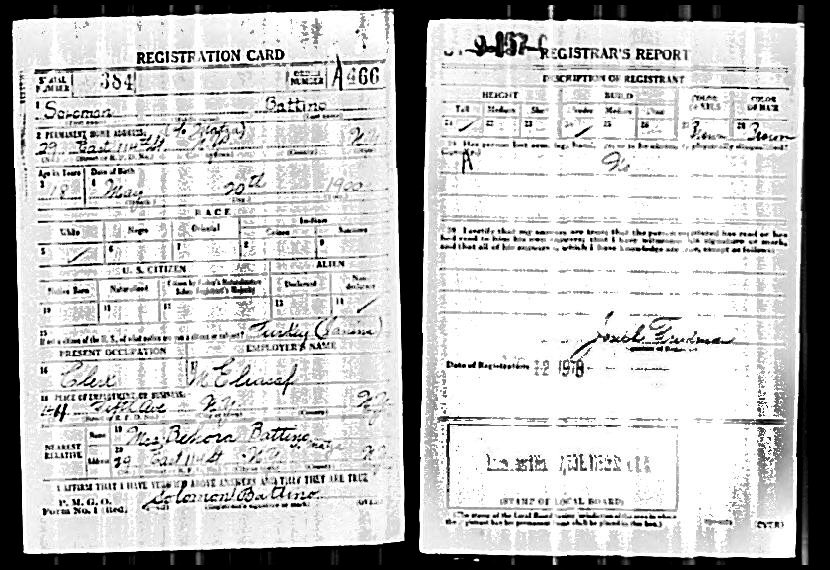 REGISTRATION CARD
SERIAL NUMBER 384 ORDER NUMBER A 966
1 Solomon Battino
2 PERMANENT HOME ADDRESS:
29 East 114 St N.Y. N.Y.
Age in Years Date of Birth
3 18 4 May 20th 1900
RACE
White Negro Oriental Indian
Citizen Noncitizen
5 6 7 8 9
U. S. CITIZEN ALIEN
Native Born Naturalized Citizen by Father's Naturalization Before Registrant's Majority Declarant Non-declarant
10 11 12 13 14
15
If not a citizen of the U. S., of what nation are you a citizen or subject? Turkey
PRESENT OCCUPATION EMPLOYER'S NAME
16 Clerk 17
18 PLACE OF EMPLOYMENT OR BUSINESS:
Fifth Ave N.Y. N.Y.
NEAREST RELATIVE
Name 19 Mrs Behora Battino
Address 20 29 East 114 St N.Y. N.Y.
I AFFIRM THAT I HAVE VERIFIED ABOVE ANSWERS AND THAT THEY ARE TRUE
P. M. G. O.
Form No. 1 (Red) Solomon Battino
(Registrant's signature or mark) (OVER)
REGISTRAR'S REPORT
DESCRIPTION OF REGISTRANT
HEIGHT BUILD COLOR OF EYES COLOR OF HAIR
Tall Medium Short Slender Medium Stout
21 22 23 24 25 26 27 Brown 28 Brown
29 Has person lost arm, leg, hand, eye, or is he obviously physically disqualified?
(Specify.) No
30 I certify that my answers are true; that the person registered has read or has
had read to him his own answers; that I have witnessed his signature or mark,
and that all of his answers of which I have knowledge are true, except as follows:
Date of Registration 12 1918
(STAMP OF LOCAL BOARD)
(The stamp of the Local Board having jurisdiction of the area in which
the registrant has his permanent home shall be placed in this box.) (OVER)